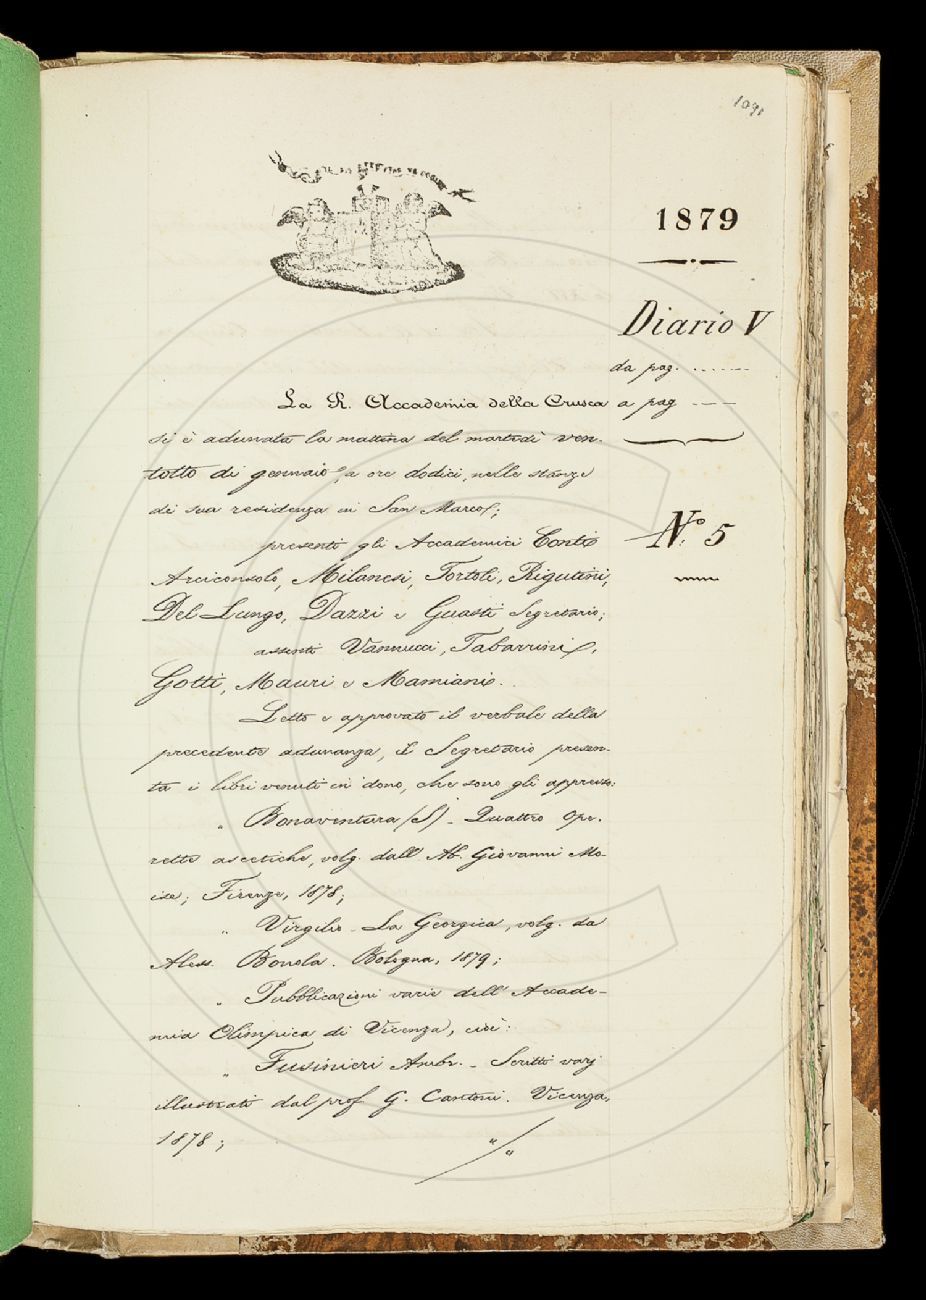 1091
1879
Diario V
da pag. ......
a pag ....
N.° 5
La R. Accademia della Crusca
si è adunata la mattina del martedì ven-
totto di gennaio, a ore dodici, nelle stanze
di sua residenza in San Marco;
presenti gli Accademici Conti
Arciconsolo, Milanesi, Tortoli, Rigutini,
Del Lungo, Dazzi e Guasti Segretario;
assenti Vannucci, Tabarrini,
Gotti, Mauri e Mamiani.
Letto e approvato il verbale della
precedente adunanza, il Segretario presen-
ta i libri venuti in dono, che sono gli appresso:
„ Bonaventura (S) - Quattro Ope-
rette ascetiche, volg. dall' Ab. Giovanni Mo-
ise; Firenze, 1878;
„ Virgilio - La Georgica, volg. da
Aless. Bonola. Bologna, 1879;
„ Pubblicazioni varie dell' Accade-
mia Olimpica di Vicenza, cioè:
„ Fusinieri Ambr. - Scritti varj
illustrati dal prof G. Cantoni. Vicenza,
1878;